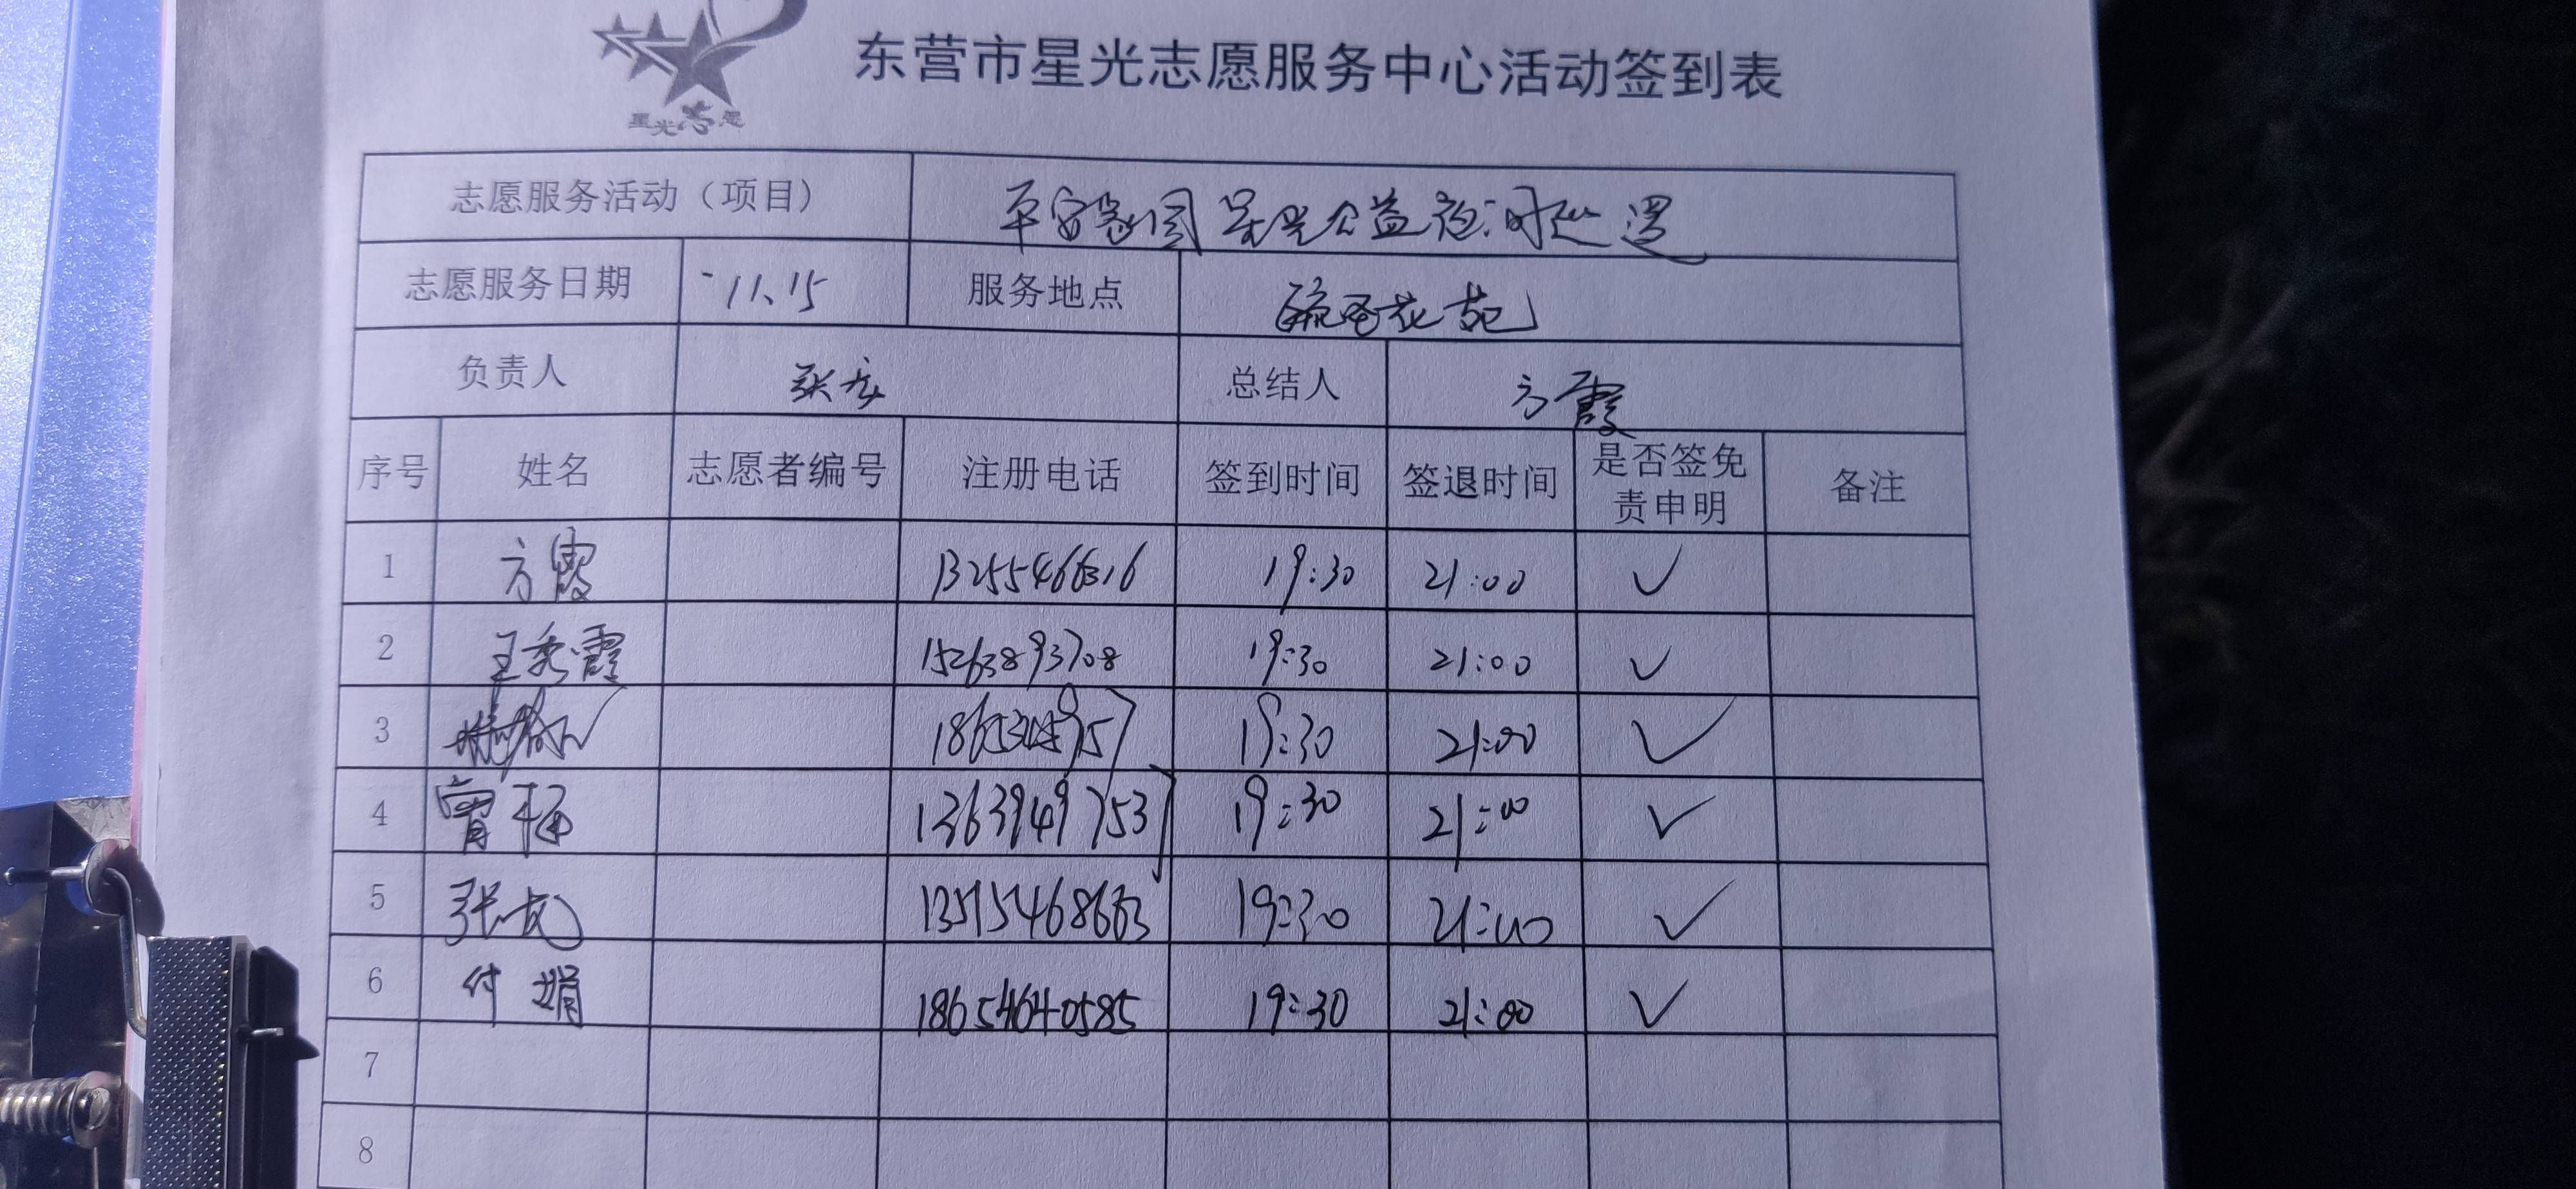 东营市星光志愿服务中心活动签到表
星光志愿
志愿服务活动（项目） 平安家园星光公益夜间巡逻
志愿服务日期 11.15 服务地点 花苑
负责人 张 总结人 方霞
序号 姓名 志愿者编号 注册电话 签到时间 签退时间 是否签免责申明 备注
1 方霞 13255466316 19:30 21:00 ✓
2 王秀霞 15263893708 19:30 21:00 ✓
3 19:30 21:00 ✓
4 13639497537 19:30 21:00 ✓
5 张 13515468663 19:30 21:00 ✓
6 付娟 18654640585 19:30 21:00 ✓
7
8